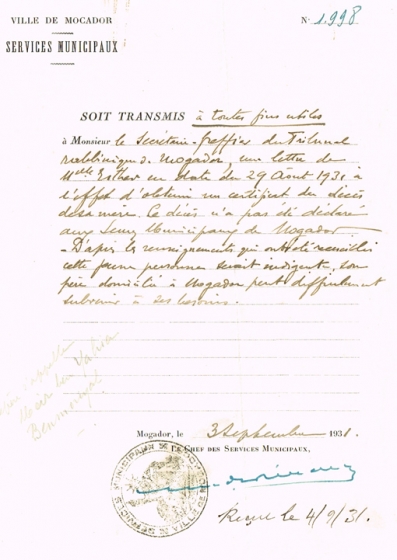 VILLE DE MOCADOR
SERVICES MUNICIPAUX
N° 1.998
SOIT TRANSMIS à toutes fins utiles
à Monsieur le Secrétaire-greffier du Tribunal
rabbinique de Mogador, une lettre de
Melle Esther en date du 29 Août 1931 à
l'effet d'obtenir un certificat du décès
de sa mère. Ce décès n'a pas été déclaré
aux Serv. Municipaux de Mogador
- D'après les renseignements qui ont été recueillis
cette jeune personne serait indigente, son
père domicilié à Mogador peut difficilement
subvenir à ses besoins.
Mogador, le 3 Septembre 1931.
LE CHEF DES SERVICES MUNICIPAUX,
SERVICES MUNICIPAUX
Reçu le 4/9/31.